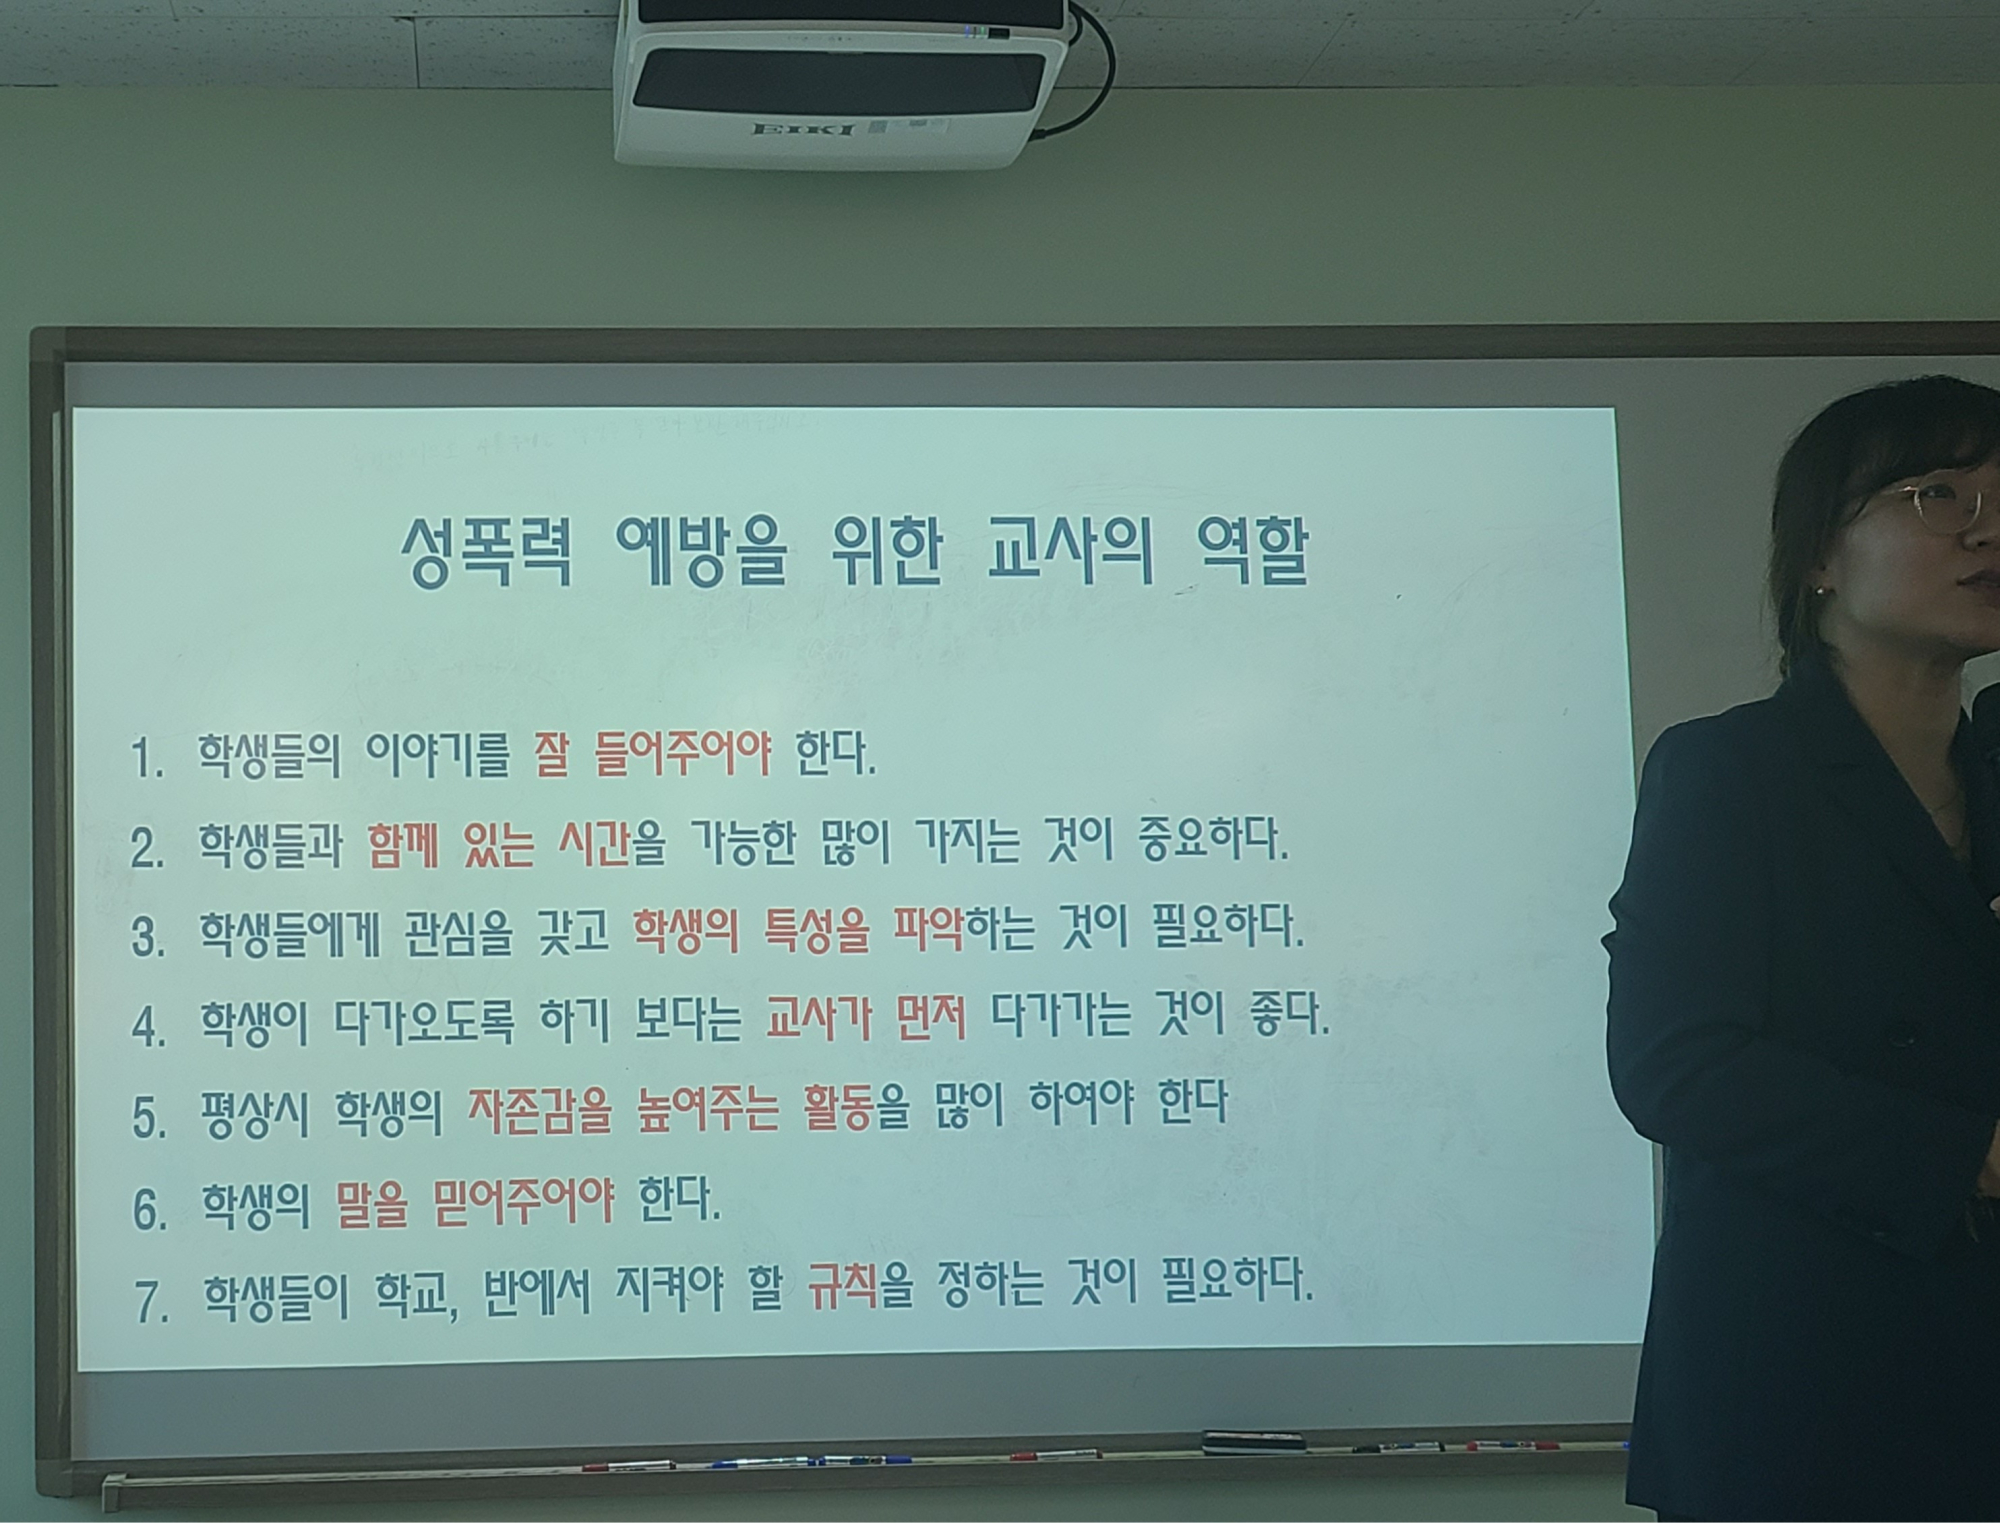 EIKI
성폭력 예방을 위한 교사의 역할
1. 학생들의 이야기를 잘 들어주어야 한다.
2. 학생들과 함께 있는 시간을 가능한 많이 가지는 것이 중요하다.
3. 학생들에게 관심을 갖고 학생의 특성을 파악하는 것이 필요하다.
4. 학생이 다가오도록 하기 보다는 교사가 먼저 다가가는 것이 좋다.
5. 평상시 학생의 자존감을 높여주는 활동을 많이 하여야 한다
6. 학생의 말을 믿어주어야 한다.
7. 학생들이 학교, 반에서 지켜야 할 규칙을 정하는 것이 필요하다.